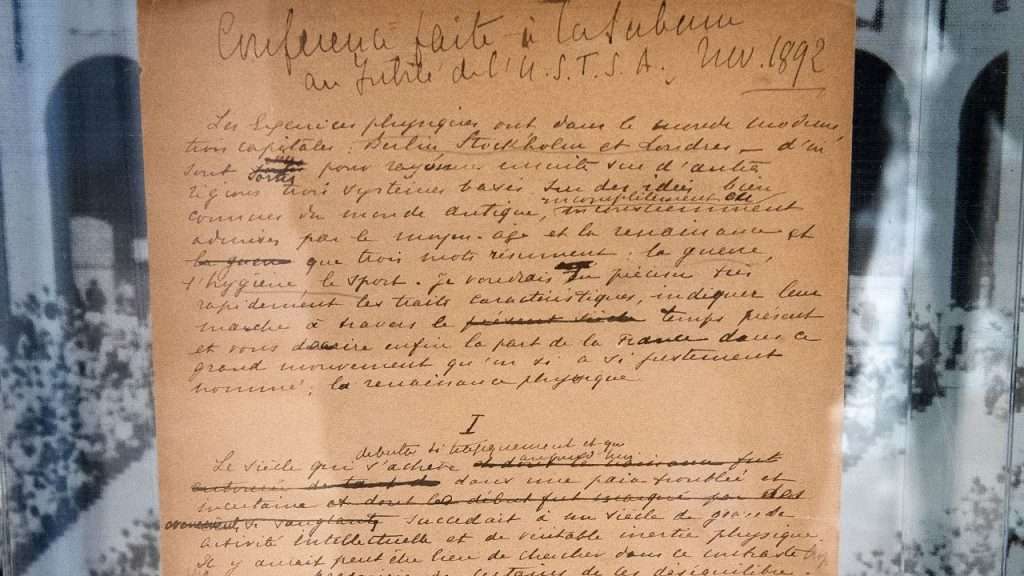 Conférence faite à la Sorbonne
au Jubilé de l'U.S.F.S.A. Nov. 1892
Les Exercices physiques ont dans le monde moderne
trois capitales : Berlin Stockholm et Londres — d'où
sont sortis pour rayonner ensuite sur d'autres
régions trois systèmes basés sur des idées bien
incomplètement ou
connues du monde antique, inconsciemment
admises par le moyen-age et la renaissance et
la guerre que trois mots résument : la guerre,
l'hygiène le sport. Je voudrais en préciser très
rapidement les traits caractéristiques, indiquer leur
marche à travers le présent siècle temps présent
et vous dire enfin la part de la France dans ce
grand mouvement qu'on a si justement
nommé : la renaissance physique
I
débuta si et qui
Le siècle qui s'achève
dans une paix troublée et
incertaine et dont le début fut marqué par des
si sanglants succédait à un siècle de grande
activité intellectuelle et de véritable inertie physique.
Il y aurait peut être lieu de chercher dans ce contraste
certains de ces déséquilibre